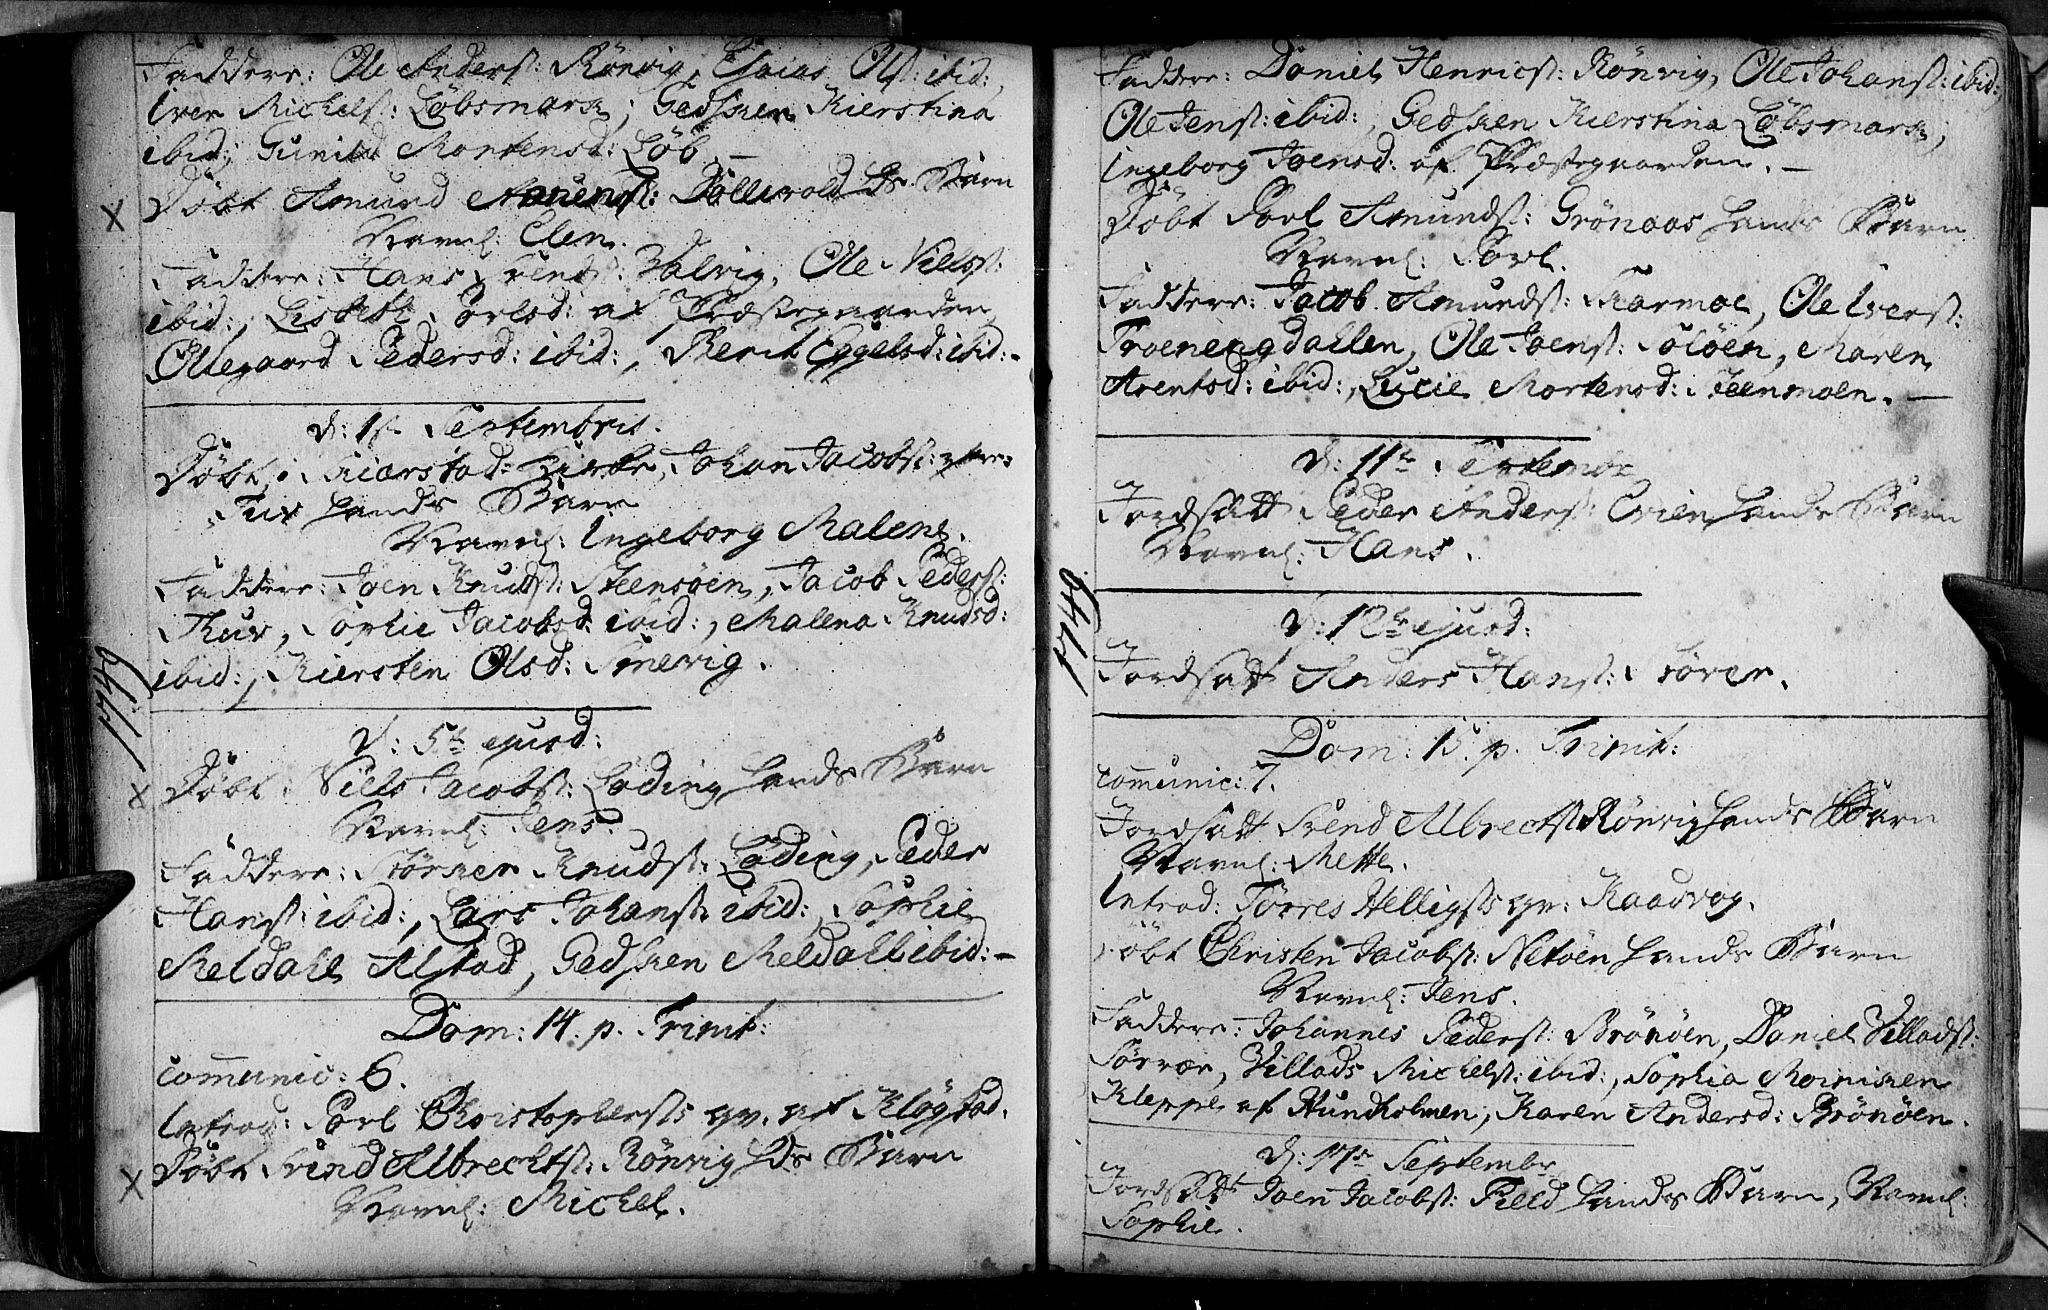 Faddere: Ole Anders: Rönvig, Esaias Ols: ibid:,
Iver Michels: Löbsmark, Gedsken Kierstina
ibid: Gunild Mortensd: Löb.
Döbt Amund Hds Barn
Navnl: Elen.
Faddere: Hans Svends: Valvig, Ole Nills:
ibid:, Lisbeth Povlsd: af Præstegaarden
Ollegaard Pedersd: ibid:, Berit Eggelsd: ibid:
d: 1st Septembris.
Döbt i Kierstad: Kirke, Johan Jacobs:
hands Barn
Navnl: Ingeborg Malene.
Faddere: Joen Knuds: Steensöen, Jacob Peders:
Kuv, Sophie Jacobsd: ibid:, Malena Knudsd:
ibid:, Kiersten Olsd: Smevig.
1749
d: 5te ejusd:
Döbt Nills Jacobs: Löding hands Barn
Navnl: Jens.
Faddere: Störker Knuds: Löding, Peder
Hans: ibid:, Lars Johans: ibid:, Sophie
Meldahl Alstad, Gedsken Meldahl ibid:
Dom: 14. p. Trinit:
communic: 6.
Introd: Povl Christophersts qv. af Klögstad.
Döbt Svend Albrechts: Rönvig Hds Barn
Navnl: Michel.
Faddere: Daniel Henrics: Rönvig, Ole Johans: ibid:,
Ole Jens: ibid:, Gedsken Kierstina Löbsmark,
Ingeborg Joensd: af Præstegaarden.
Döbt Povl Amunds: Grönaas hands Barn
Navnl: Povl.
Faddere: Jacob Amunds: Karmoe, Ole Ivers:
Troenengdallen, Ole Joens: Soløen, Maren
Arentsd: ibid:, Lucie Mortensd: Steensmoen.
d: 11te Septembr
Jordsatt Peder Anders: Evien hands Barn
Navnl: Hans.
1749
d: 12te ejusd:
Jordsatt Anders Hans: Sörver.
Dom: 15. p. Trinit:
communic: 7.
Jordsatt Svend Albrechts Rönvig hands Barn
Navnl: Mette.
Introd: Törres Helligsts qv: Kaadvog.
Döbt Christen Jacobs: Netöen hands Barn
Navnl: Jens.
Faddere: Johannes Peders: Brönöen, Daniel Villads:
Sörvær, Villads Michels: ibid:, Sophia Moinichen
Kleppe af Hundholmen, Karen Andersd: Brönöen.
d: 17de Septembr
Jordsatt Joen Jacobs: Field hands Barn, Navnl:
Sophie.